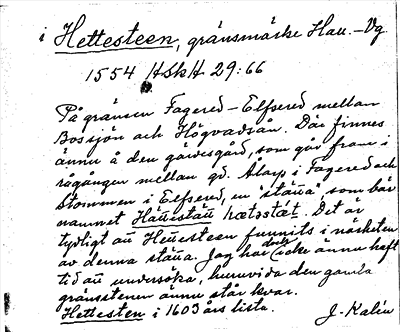 i Hettesteen, gränsmärke Hall.-Vg
1554 HSkH 29:66
På gränsen Fagered - Elfsered mellan
Bossjön och Högvadsån. Där finnes
ännu å den gärdesgård, som går fram i
rågången mellan gd. Älarp i Fagered och
Stommen i Elfsered, en "stätta" som bär
namnet Hättestätt hætəstæt. Det är
tydligt att Hettesteen funnits i närheten
av denna stätta. Jag har dock icke ännu haft
tid att undersöka, huruvida den gamla
gränsstenen ännu står kvar.
Hettesten i 1603 års lista.
J. Kalén